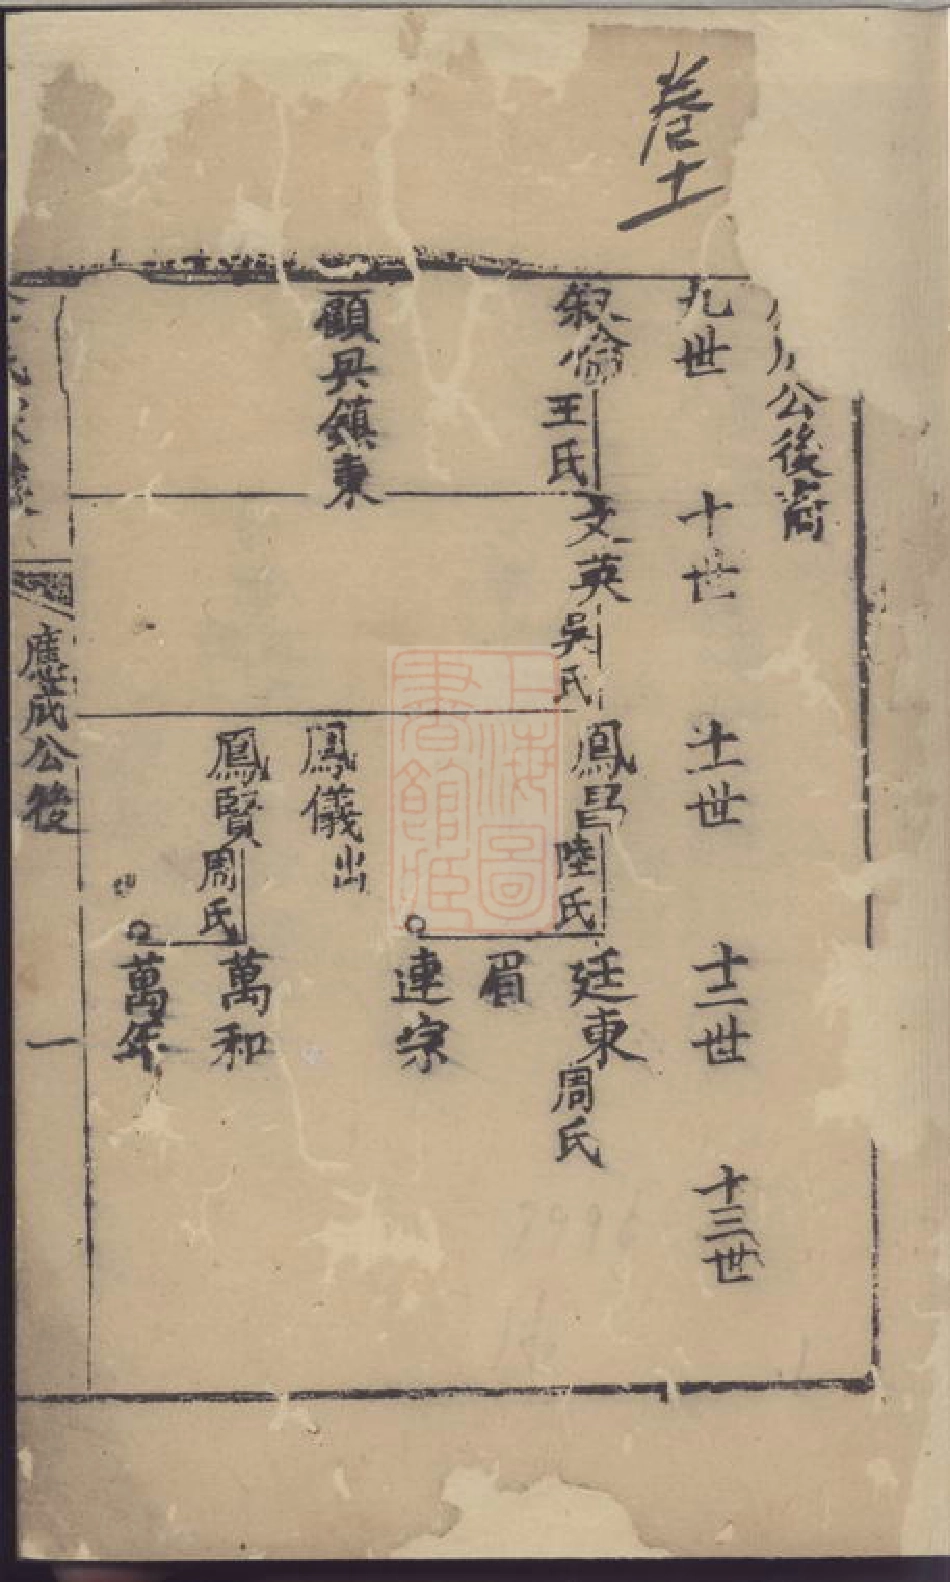 卷十一
公後裔
九世
十世
十一世
十二世
十三世
叙倫
王氏
文英
吳氏
鳳昌
陸氏
廷東
周氏
眉
連宗
鳳儀出
顧兵鎮東
鳳賢
周氏
萬和
萬年
應成公後
一
上海圖書館藏